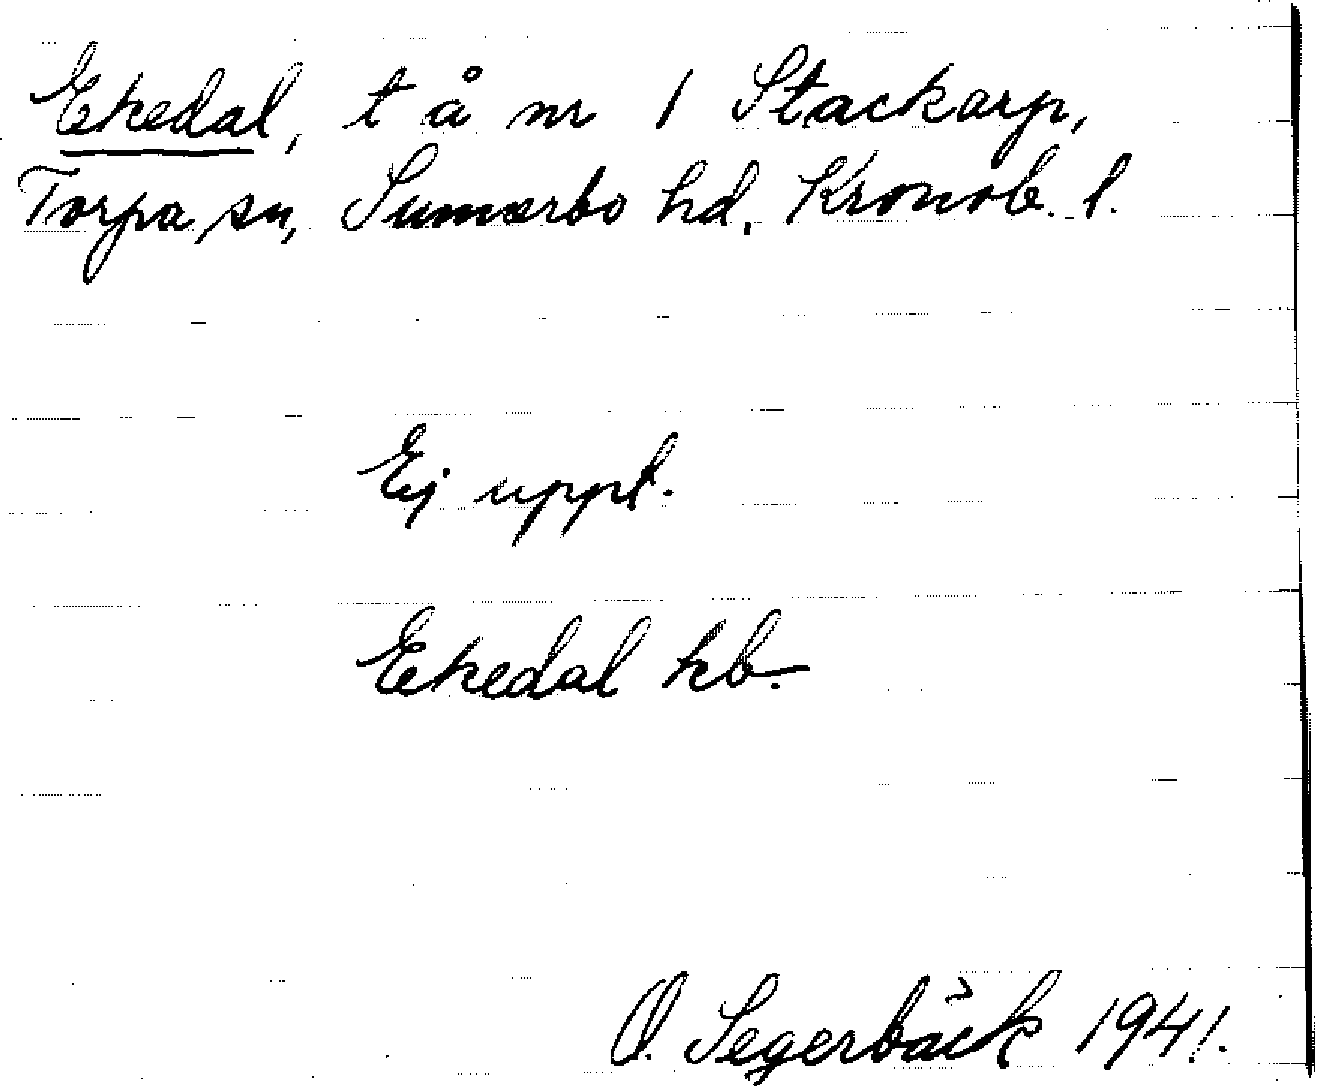 Ekedal, t å nr 1 Stackarp,
Torpa sn, Sunnerbo hd, Kronob. l.
Ej uppt.
Ekedal kb.
O. Segerbäck 1941.